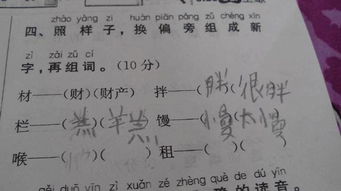 zhào yàng zi huàn piān páng zǔ chéng xīn
四、照样子,换偏旁组成新
zì zài zǔ cí
字,再组词。(10 分)
材——(财)(财产) 拌——(胖)(很胖)
栏——( )( ) 馒——(慢)(太慢)
喉——( )( ) 租——( )( )
zì xuǎn zé zhèng què de dú yīn
的读音。